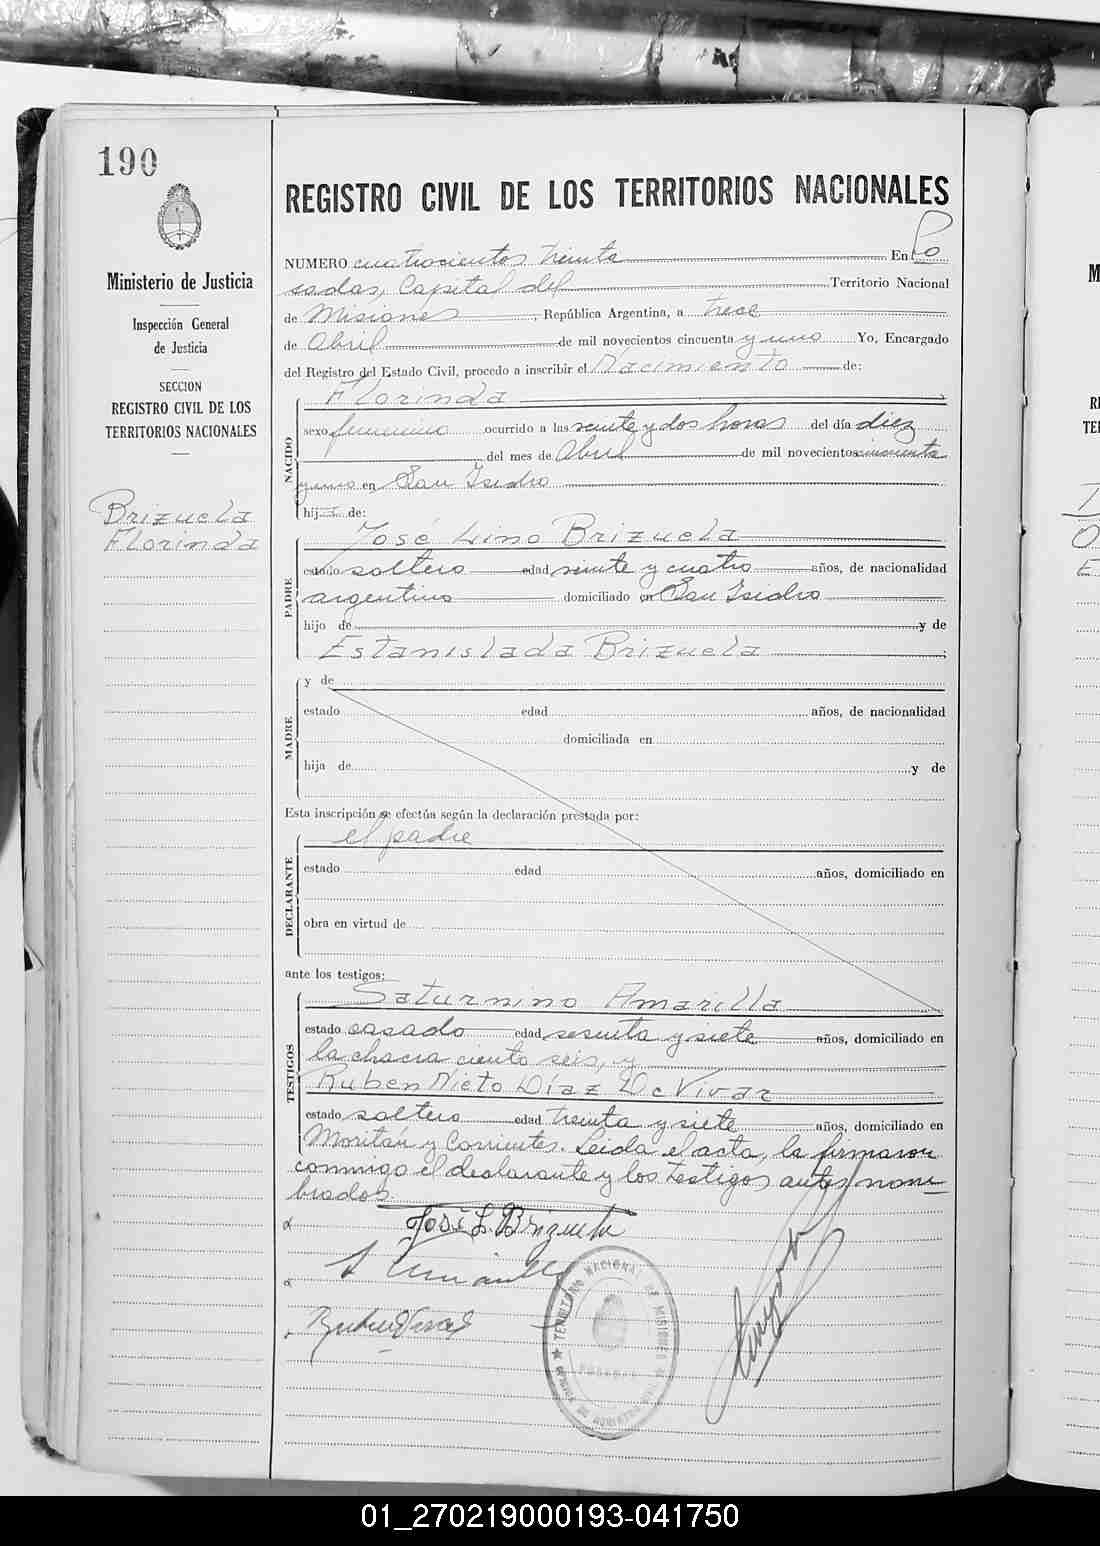 190
REGISTRO CIVIL DE LOS TERRITORIOS NACIONALES
Ministerio de Justicia
Inspección General
de Justicia
SECCION
REGISTRO CIVIL DE LOS
TERRITORIOS NACIONALES
Brizuela
Florinda
NUMERO cuatrocientos treinta En Po
sadas, Capital del Territorio Nacional
de Misiones, República Argentina, a trece
de Abril de mil novecientos cincuenta y uno Yo, Encargado
del Registro del Estado Civil, procedo a inscribir el Nacimiento de:
NACIDO
Florinda
sexo femenino ocurrido a las veinte y dos horas del día diez
del mes de Abril de mil novecientos cincuenta
y uno en San Isidro
hij de:
PADRE
José Lino Brizuela
estado soltero edad veinte y cuatro años, de nacionalidad
argentino domiciliado en San Isidro
hijo de y de
Estanislada Brizuela
MADRE
y de
estado edad años, de nacionalidad
domiciliada en
hija de y de
Esta inscripción se efectúa según la declaración prestada por:
DECLARANTE
el padre
estado edad años, domiciliado en
obra en virtud de
ante los testigos:
TESTIGOS
Saturnino Amarilla
estado casado edad sesenta y siete años, domiciliado en
la chacra ciento seis, y
Ruben Nieto Díaz De Vivar
estado soltero edad treinta y siete años, domiciliado en
Moritán y Corrientes. Leída el acta, la firmaron
conmigo el declarante y los testigos antes nom-
brados.
José L. Brizuela
TERRITORIO NACIONAL DE MISIONES
POSADAS
01_270219000193-041750